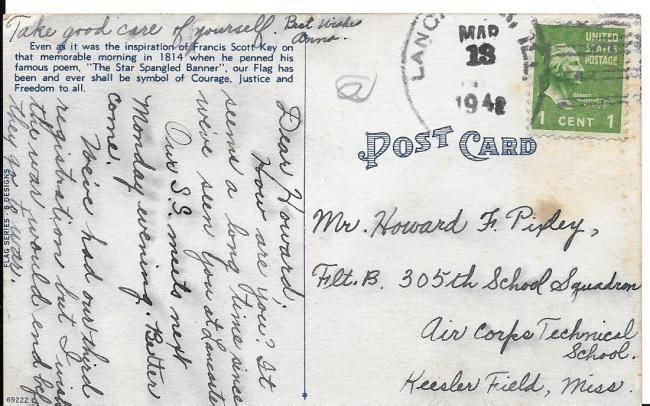 Take good care of yourself. Best Wishes
Anna.
Even as it was the inspiration of Francis Scott Key on
that memorable morning in 1814 when he penned his
famous poem, "The Star Spangled Banner", our Flag has
been and ever shall be symbol of Courage, Justice and
Freedom to all.
Dear Howard,
How are you? It
seems a long time since
we've seen you at Lancaste
Our S.S. meets next
Monday evening. Better
come.
We've had our third
registration but I wish
the war would end bef
they go to war.
FLAG SERIES - 8 DESIGNS
69222
LANC
MAR
13
1942
UNITED
STATES
POSTAGE
1 CENT 1
POST CARD
Mr. Howard F. Pixley,
Flt. B. 305th School Squadron
Air Corps Technical
School.
Keesler Field, Miss.